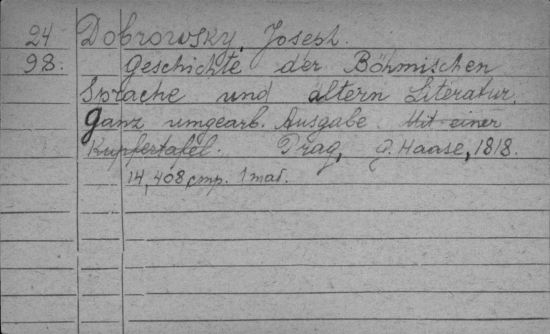 24 Dobrowsky, Joseph.
98. Geschichte der Böhmischen
Sprache und ältern Literatur.
Ganz umgearb. Ausgabe. Mit einer
Kupfertafel. Prag, G. Haase, 1818.
14, 408 стр. 1 таб.